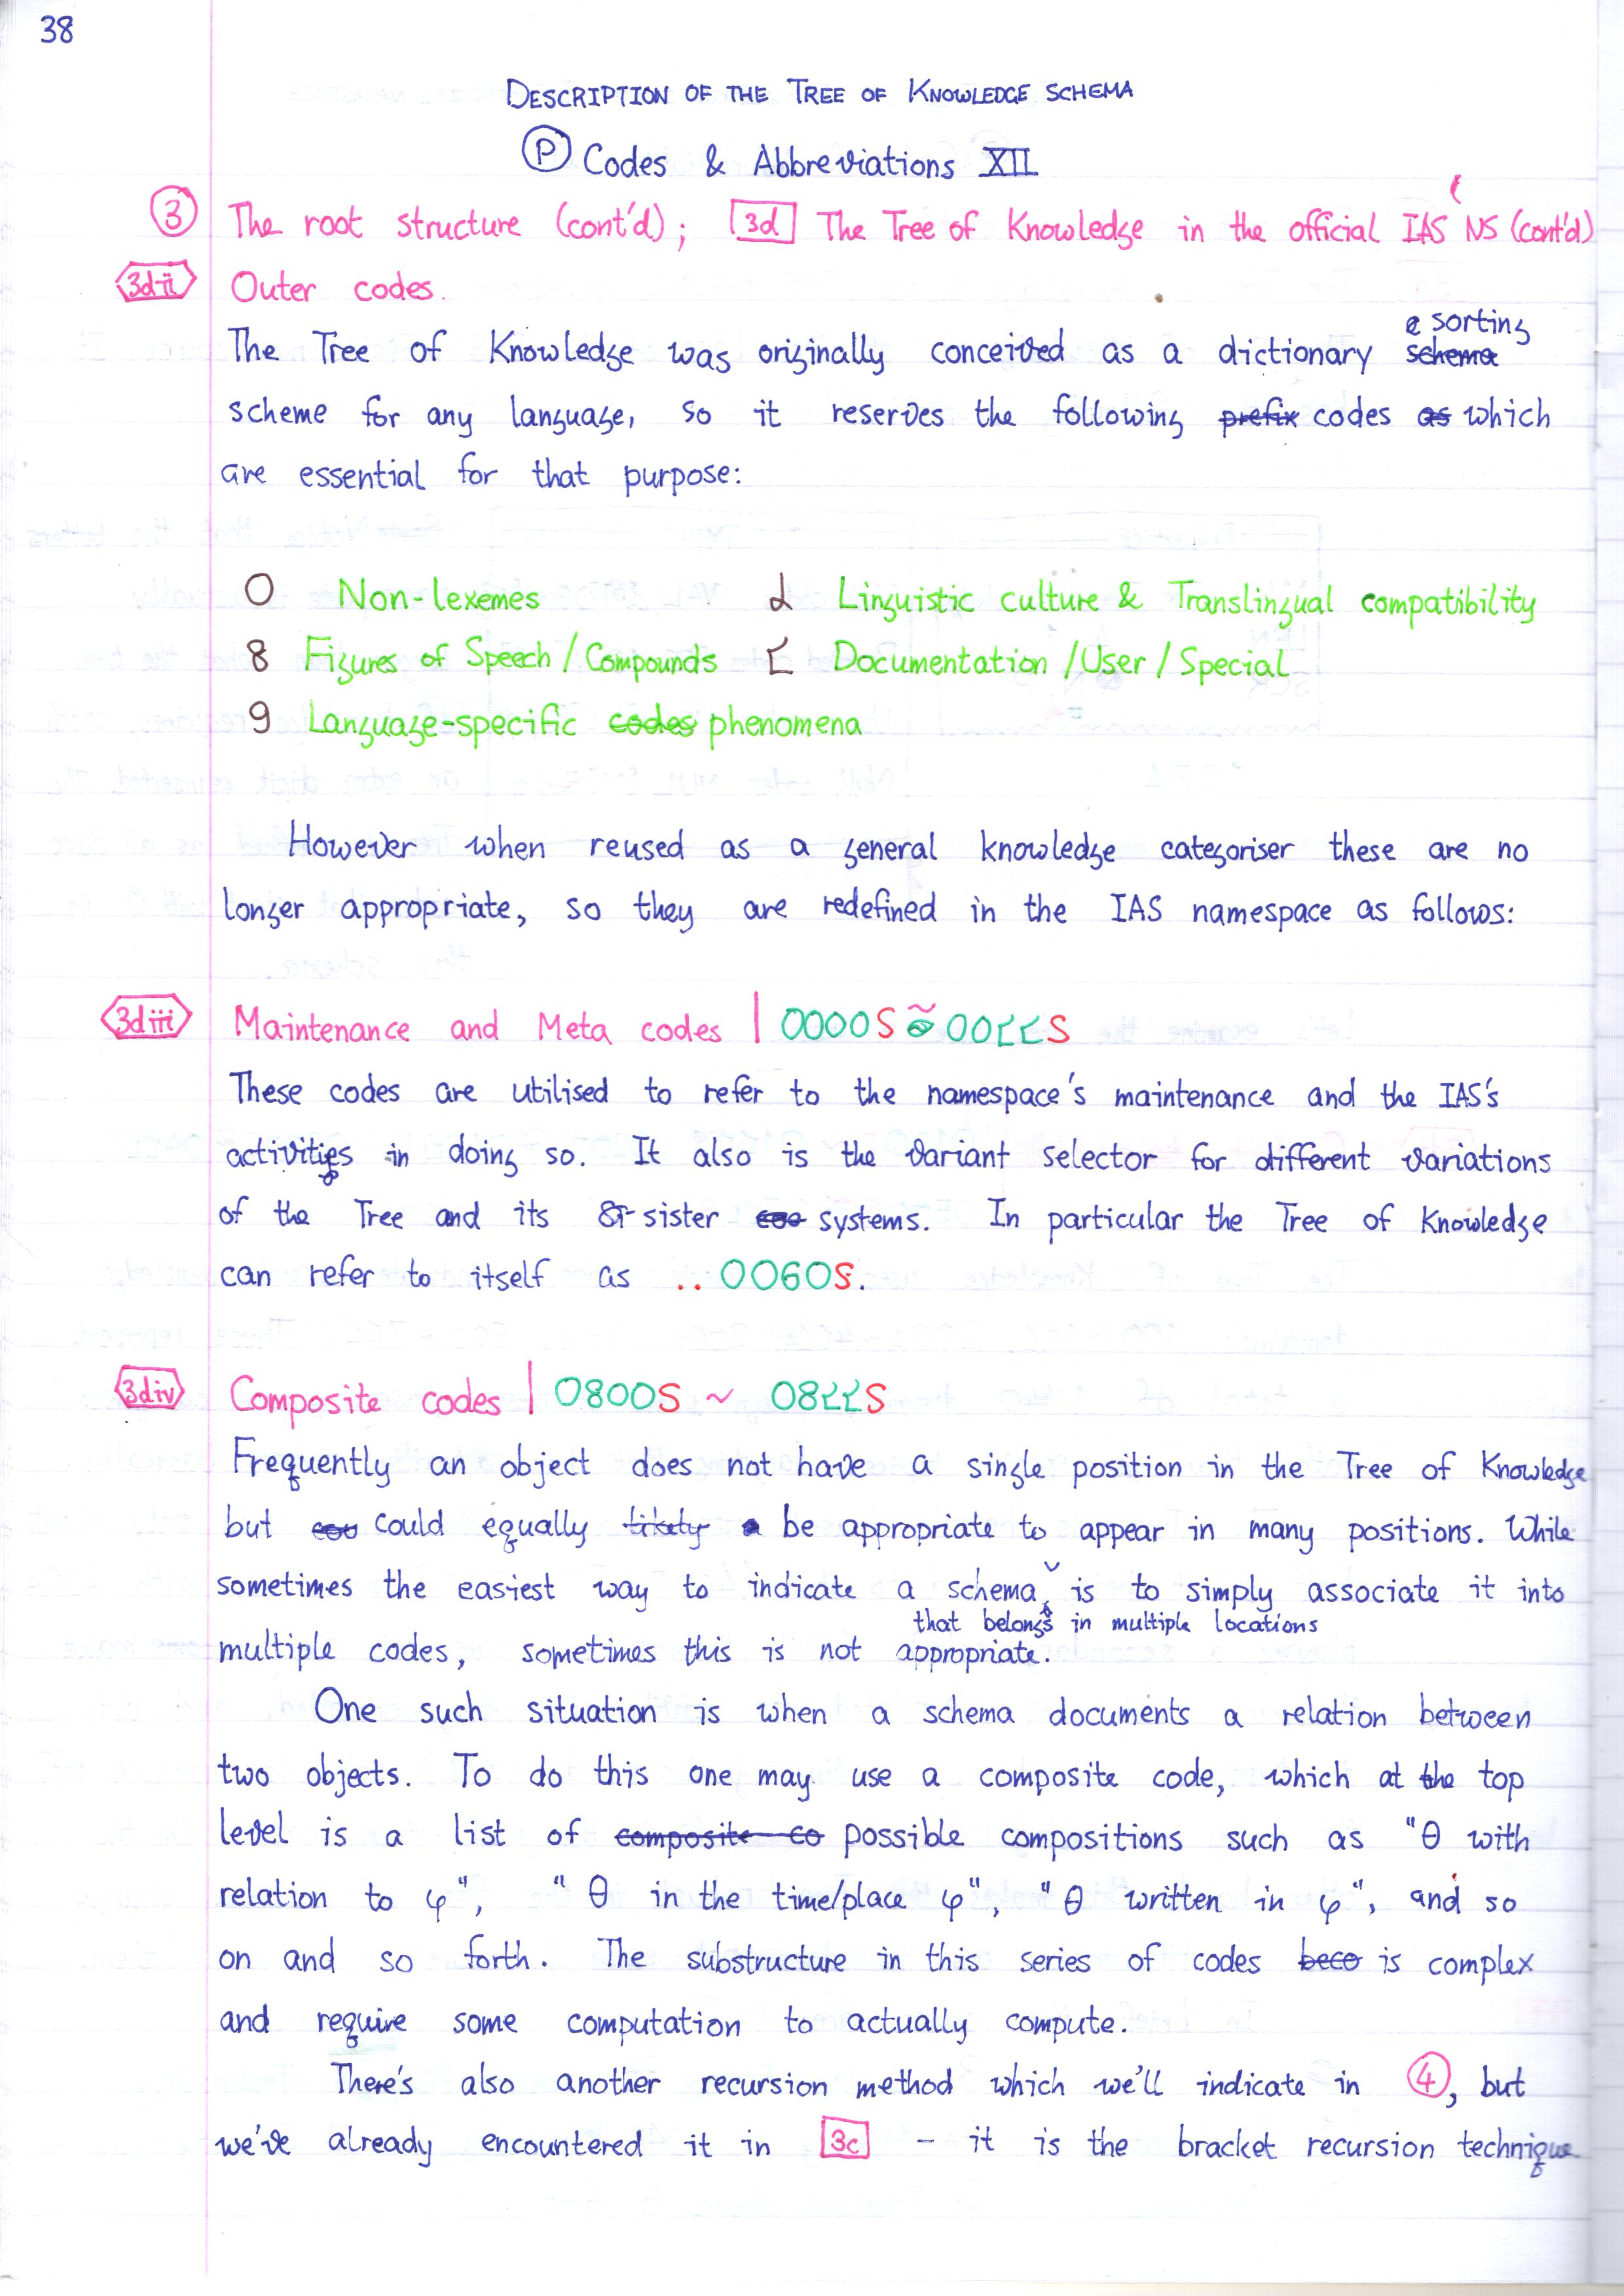 38
DESCRIPTION OF THE TREE OF KNOWLEDGE SCHEMA
Ⓟ Codes & Abbreviations XII
③ The root structure (cont'd); 3d The Tree of Knowledge in the official IAS NS (cont'd)
3dii Outer codes.
sorting
The Tree of Knowledge was originally conceived as a dictionary schema
scheme for any language, so it reserves the following prefix codes as which
are essential for that purpose:
0 Non-lexemes d Linguistic culture & Translingual compatibility
8 Figures of Speech / Compounds Ɛ Documentation / User / Special
9 Language-specific codes phenomena
However when reused as a general knowledge categoriser these are no
longer appropriate, so they are redefined in the IAS namespace as follows:
3diii Maintenance and Meta codes | 0000S ~ 00ƐƐS
These codes are utilised to refer to the namespace's maintenance and the IAS's
activities in doing so. It also is the variant selector for different variations
of the Tree and its sister systems. In particular the Tree of Knowledge
can refer to itself as ..0060S.
3div Composite codes | 0800S ~ 08ƐƐS
Frequently an object does not have a single position in the Tree of Knowledge
but cou could equally likely be appropriate to appear in many positions. While
sometimes the easiest way to indicate a schema is to simply associate it into
that belongs in multiple locations
multiple codes, sometimes this is not appropriate.
One such situation is when a schema documents a relation between
two objects. To do this one may use a composite code, which at the top
level is a list of composite co possible compositions such as "θ with
relation to φ", "θ in the time/place φ", "θ written in φ", and so
on and so forth. The substructure in this series of codes beco is complex
and require some computation to actually compute.
There's also another recursion method which we'll indicate in ④, but
we've already encountered it in 3c - it is the bracket recursion technique